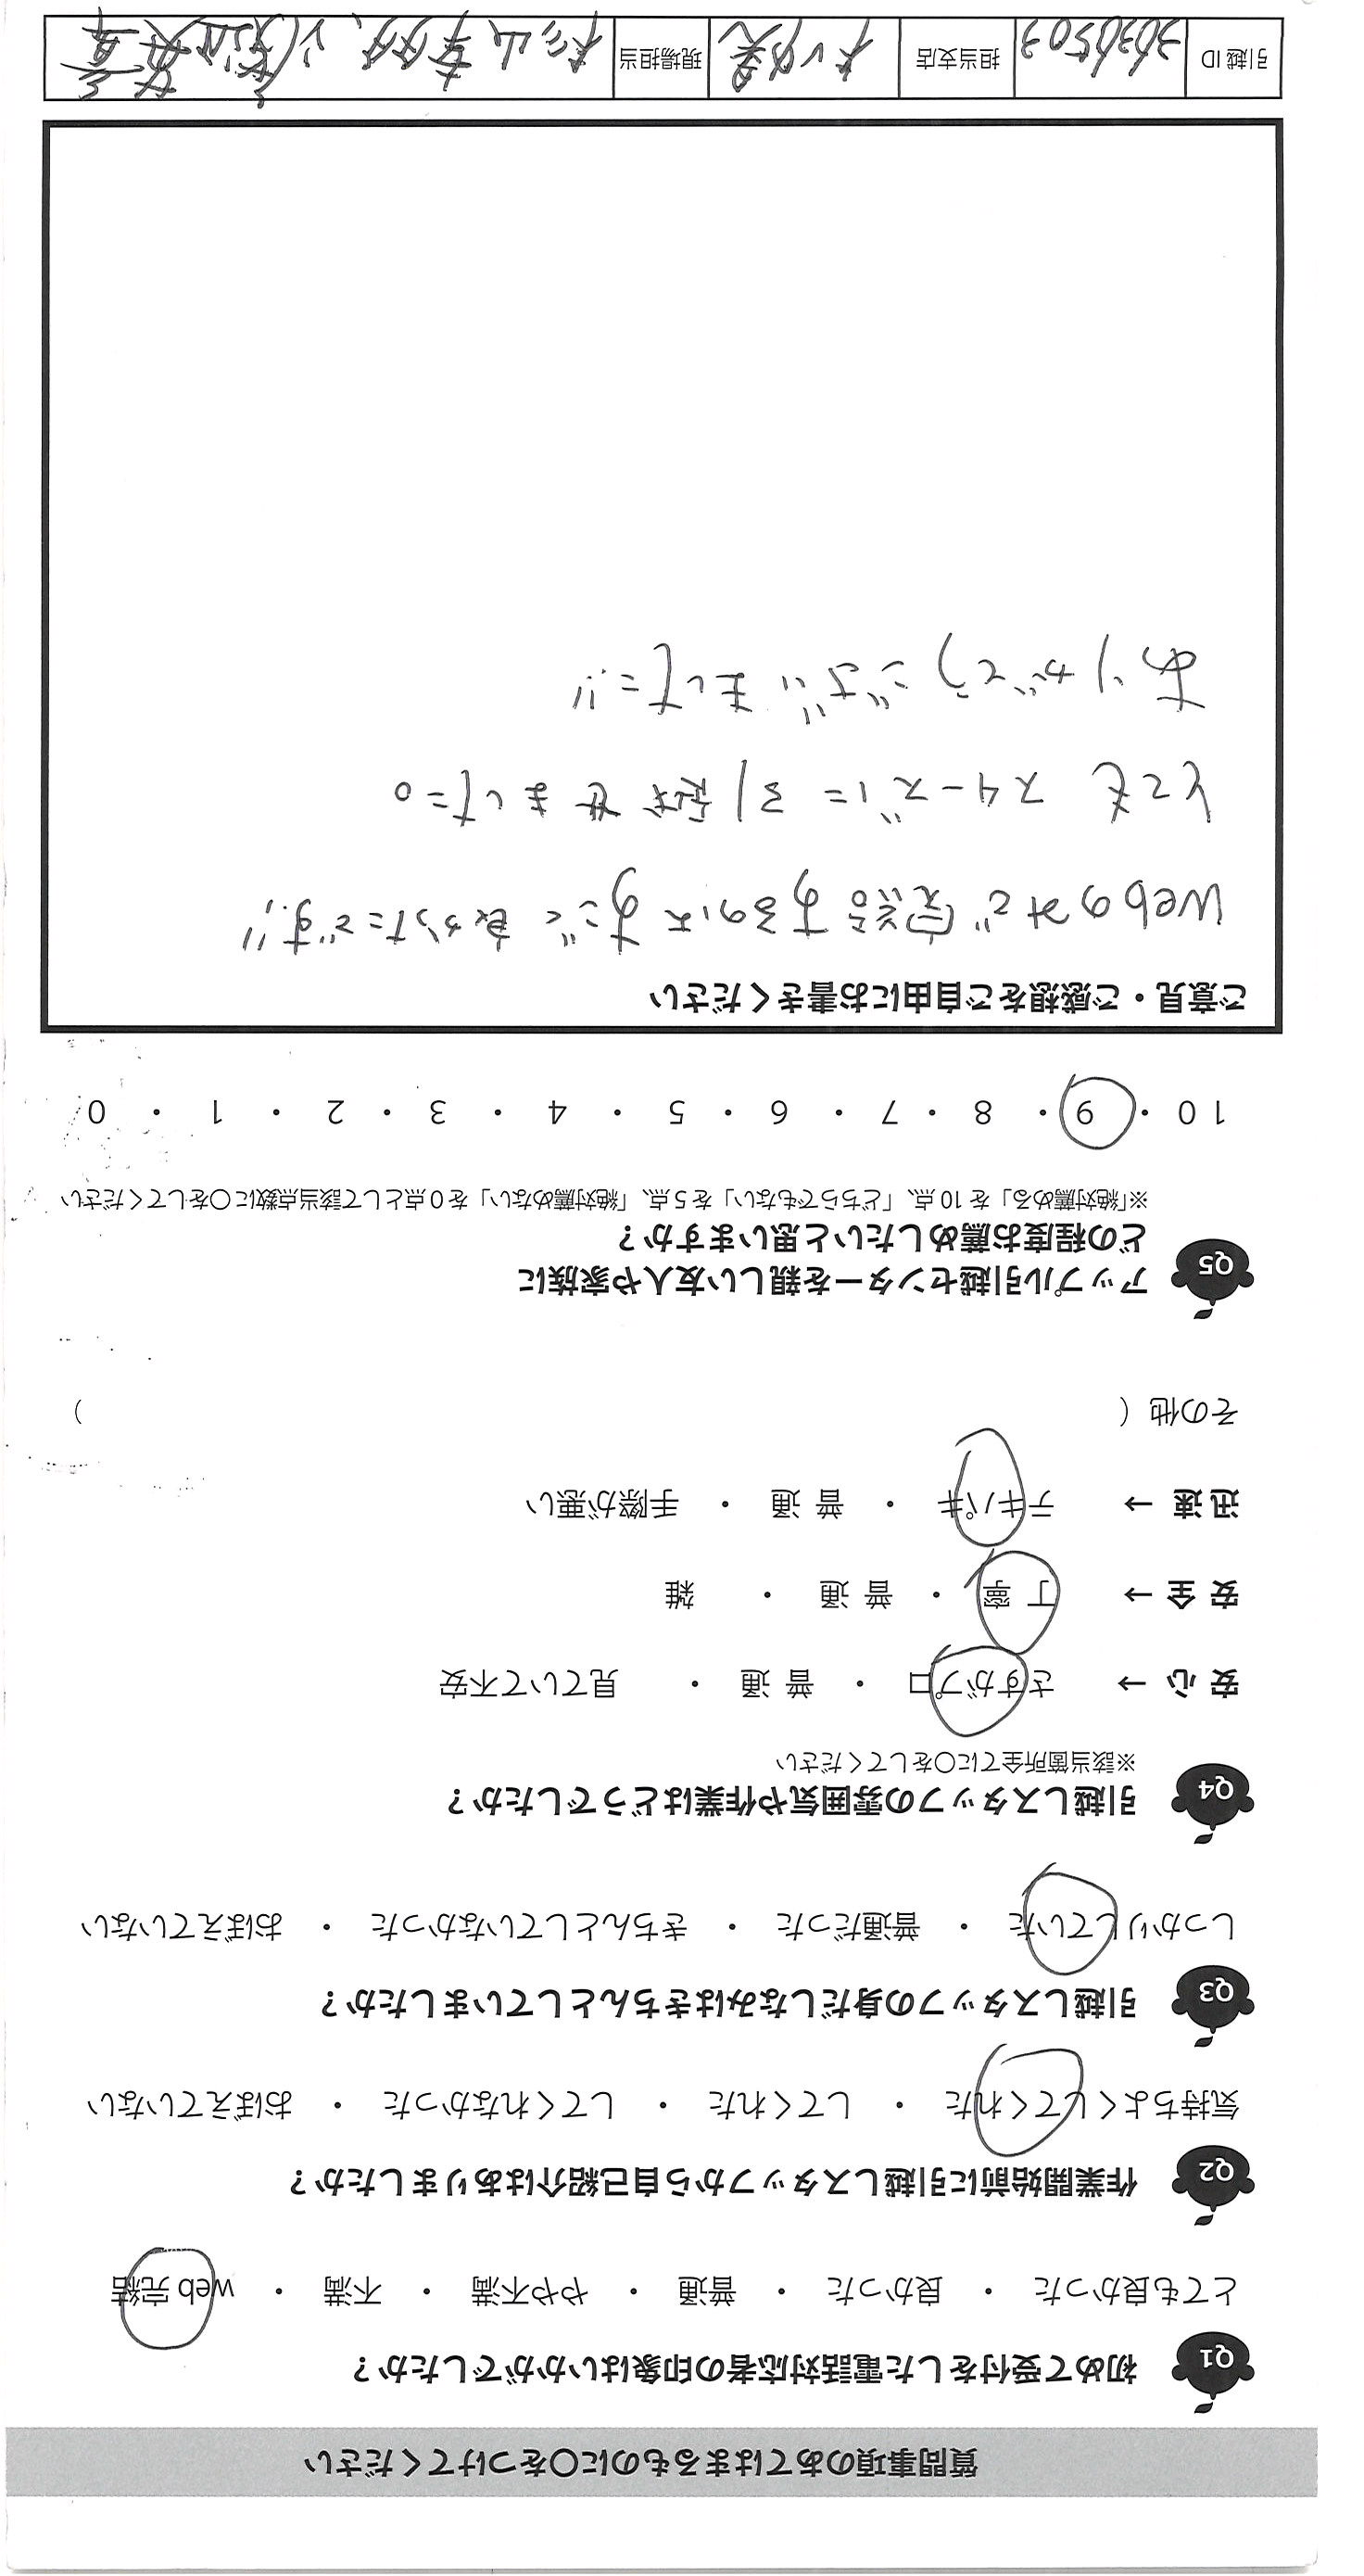 質問事項のあてはまるものに〇をつけてください
Q1 初めて受付をした電話対応者の印象はいかがでしたか？
とても良かった ・ 良かった ・ 普通 ・ やや不満 ・ 不満 ・ web 完結
Q2 作業開始前に引越しスタッフから自己紹介はありましたか？
気持ちよくしてくれた ・ してくれた ・ してくれなかった ・ おぼえていない
Q3 引越しスタッフの身だしなみはきちんとしていましたか？
しっかりしていた ・ 普通だった ・ きちんとしていなかった ・ おぼえていない
Q4 引越しスタッフの雰囲気や作業はどうでしたか？
※該当箇所全てに〇をしてください
安 心 → さすがプロ ・ 普 通 ・ 見ていて不安
安 全 → 丁 寧 ・ 普 通 ・ 雑
迅 速 → テキパキ ・ 普 通 ・ 手際が悪い
その他（ ）
Q5 アップル引越センターを親しい友人や家族に
どの程度お薦めしたいと思いますか？
※「絶対薦める」を 10 点、「どちらでもない」を 5 点、「絶対薦めない」を 0 点として該当点数に〇をしてください
10 ・ 9 ・ 8 ・ 7 ・ 6 ・ 5 ・ 4 ・ 3 ・ 2 ・ 1 ・ 0
ご意見・ご感想をご自由にお書きください
Webのみで完結するのはすごく良かったです!!
とても スムーズに引越せました。
ありがとうございました!!
引越 ID 3030503 担当支店 現場担当